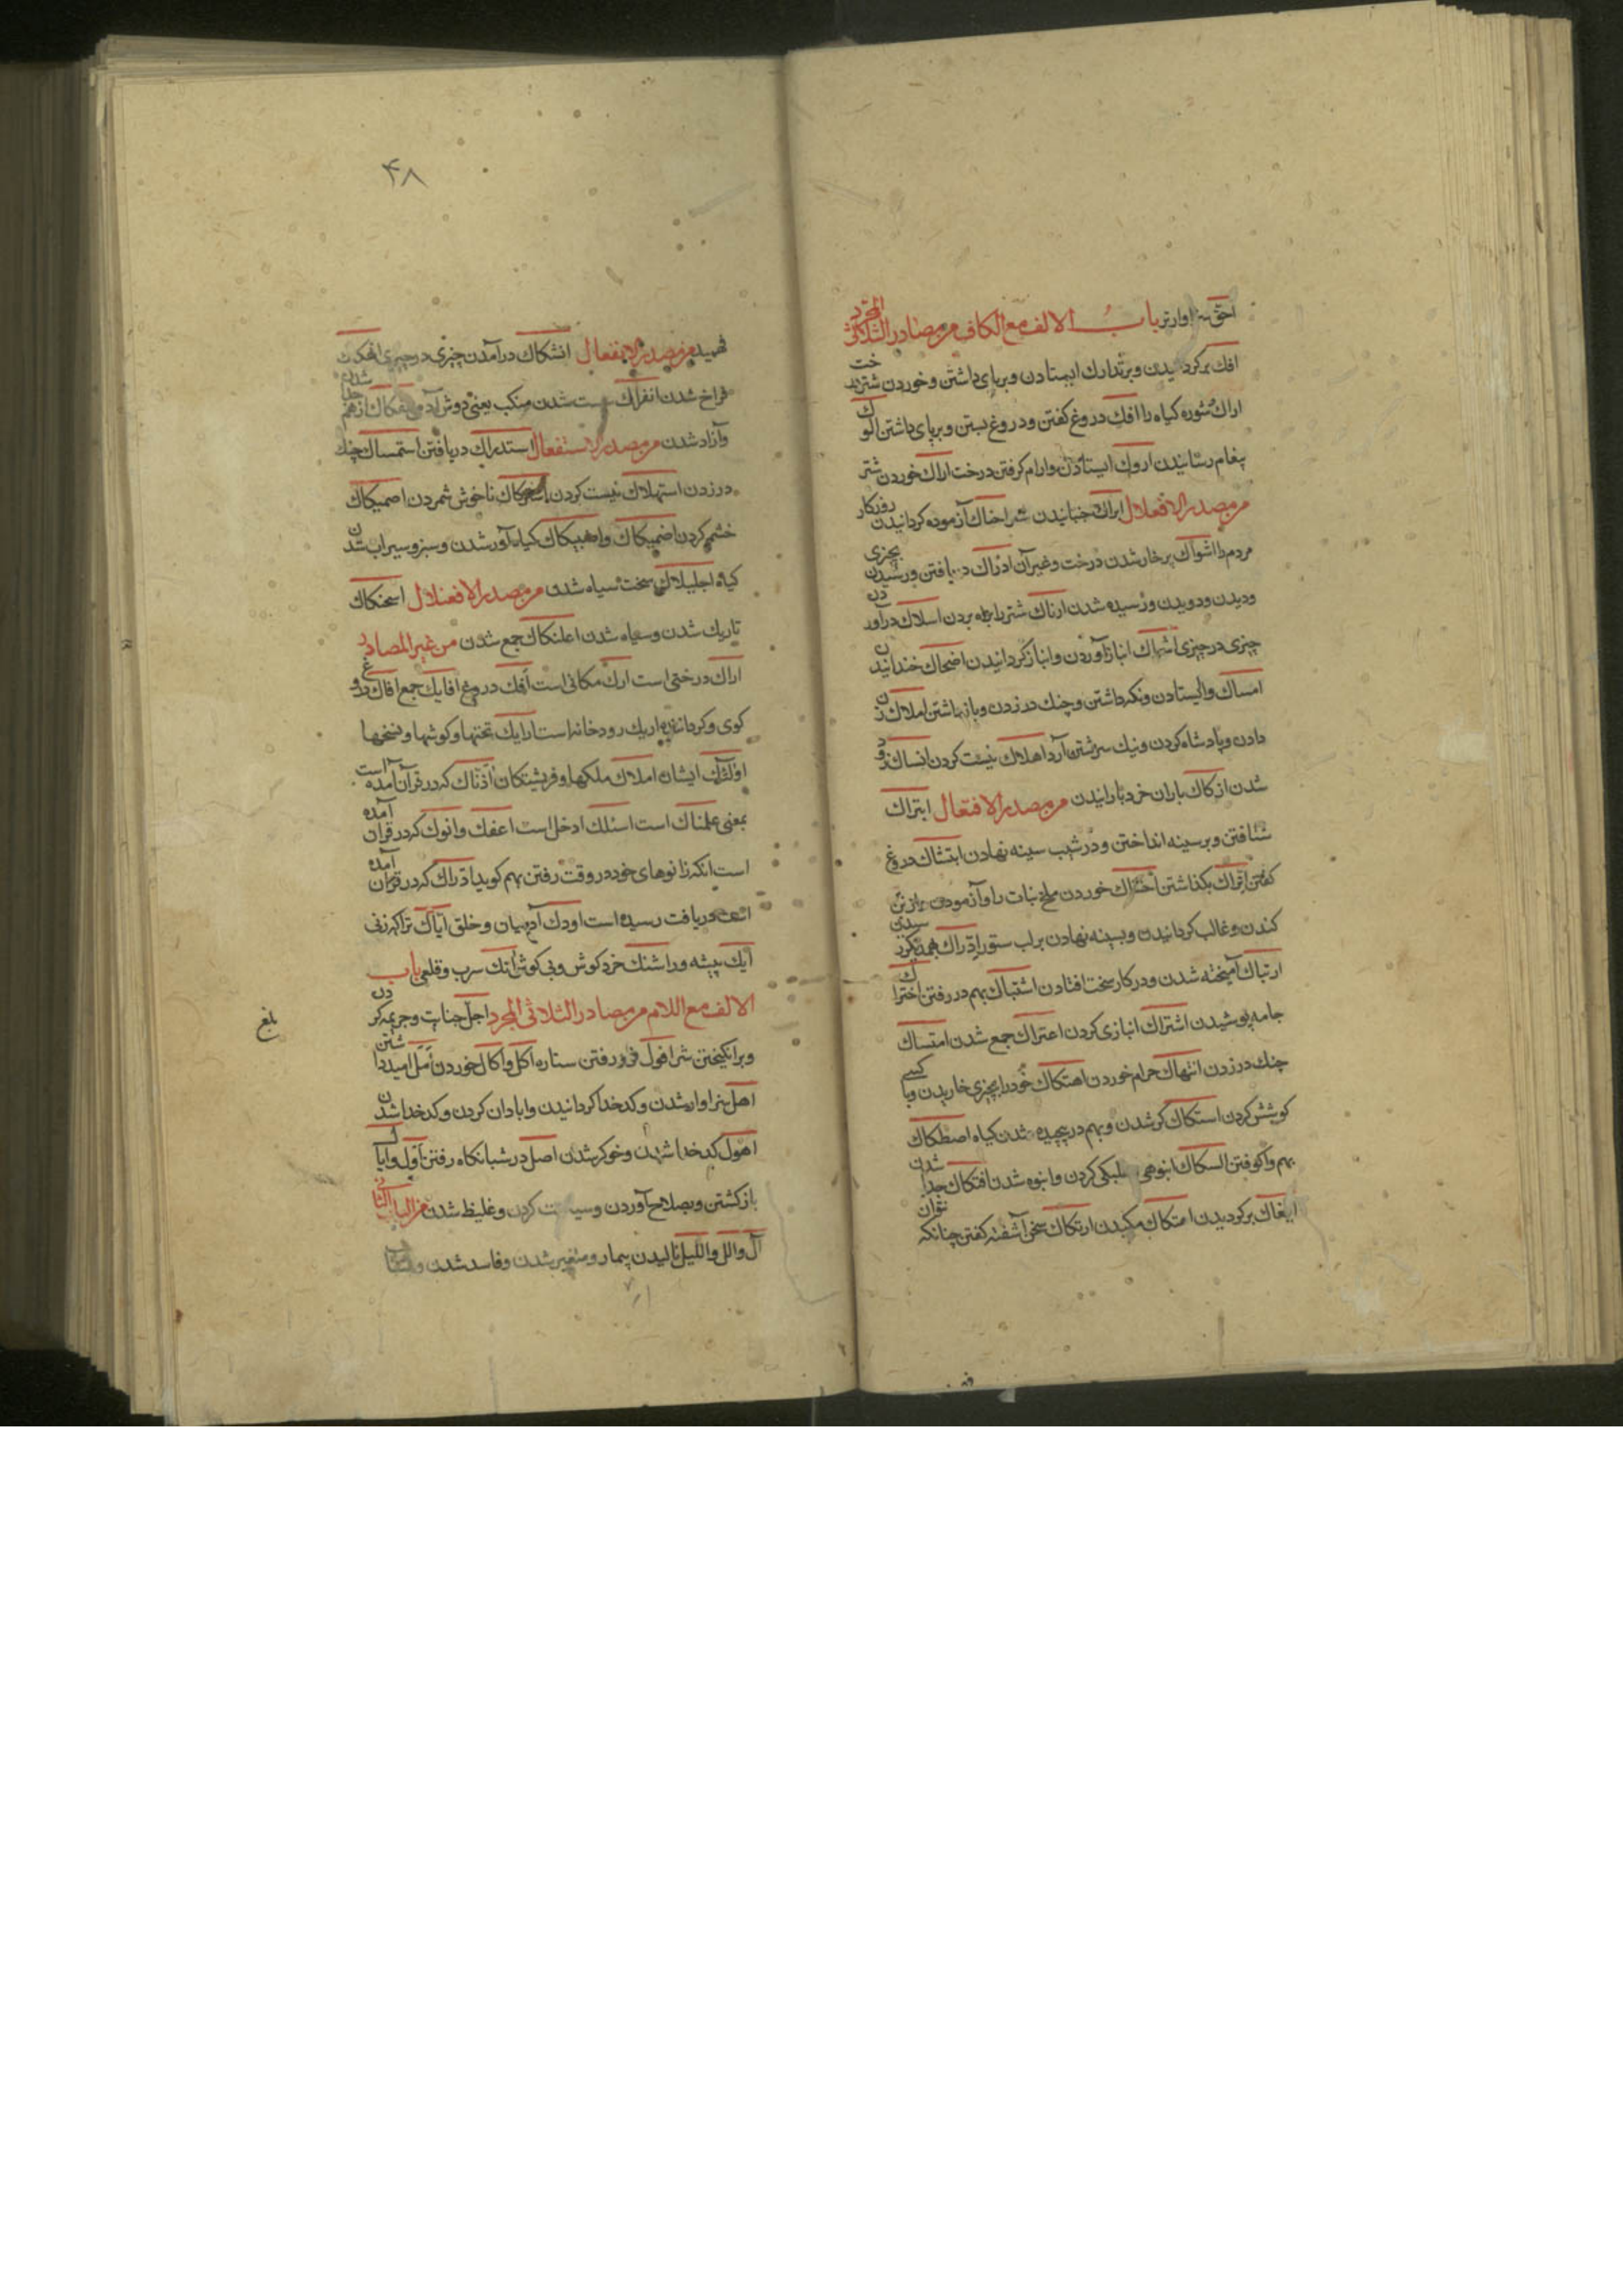 احق سزاوارتر باب الالف مع الكاف من مصادر الثلاثی المجرد
افك بركردانیدن و ارك ایستادن و برپای داشتن و خوردن شتر درخت
اراك شوره كیاه را افك دروغ كفتن و دروغ بستن و برپای داشتن الوك
پیغام رسانیدن اروك ایستادن و ارام كرفتن درخت اراك خوردن شتر
من مصدر الافعلال ابراك خبانیدن شتر احناك آزموده كردانیدن روزكار
مردم را اشواك پر خار شدن درخت و غیر آن ادراك دریافتن و رسیدن بچیزی
و دیدن و دویدن و رسیده شدن ارتاك شتر را براه بردن اسلاك درآوردن
چیزی در چیزی اشراك انباز آوردن و انباز كردانیدن اضحاك خندانیدن
امساك وا ایستادن و نكه داشتن و چنك در زدن و باز داشتن املاك زن
دادن و پادشاه كردن و نیك سرشتن آرد اهلاك نیست كردن انساك زود
شدن ازكاك باران خرد بارانیدن من مصدر الافتعال ابتراك
شتافتن و بر سینه انداختن و در شیب سینه نهادن ابتشاك دروغ
كفتن اتراك بكذاشتن احناك خوردن ملخ نبات را و آزمودن
كندن و غالب كردانیدن و سینه نهادن بر لب ستور ادراك بهمدیكر رسیدن
ارتباك آمیخته شدن و در كار سخت افتادن اشتباك بهم در رفتن احتراك
جامه پوشیدن اشتراك انبازی كردن اعتراك جمع شدن امتساك
چنك در زدن انتهاك حرام خوردن احتكاك خود را بچیزی خاریدن و با كسی
كوشش كردن استكاك كر شدن و بهم در پیچیده شدن كیاه اصطكاك
بهم واكوفتن التكاك انبوهی كردن و انبوه شدن افتكاك جدا شدن
ایفاك بركردیدن امتكاك مكیدن ارتكاك سخن آشفته كفتن چنانكه نتوان
۴۸
فهمید من مصدر الانفعال انشكاك درآمدن چیزی در چیزی
فراخ شدن انفراك سست شدن منكب یعنی دوش آدمی انفكاك از هم جدا شدن
و آزاد شدن من مصدر الاستفعال استدراك دریافتن استمساك چنك
در زدن استهلاك نیست كردن ناخوش شمردن اصمیكاك
خشم كردن اضمیكاك و اهبیكاك كیاه آور شدن و سبز و سیراب شدن
كیاه اجلیلاك سخت سیاه شدن من مصدر الافعنلال اسحنكاك
تاریك شدن و سیاه شدن اعلنكاك جمع شدن من غیر المصادر
اراك درختی است ارك مكانی است افك دروغ افایك جمع افاك دروغ
كوی و كرداننده اریك رودخانه است ارایك تختها و كوشها و
اولئك ایشان املاك ملكها و فریشتكان آذناك كه در قرآن آمده است
بمعنی علمناك است اسلك ادخل است اعفك و انوك كه در قران آمده
است انكه زانوهای خود در وقت رفتن بهم كوبد ادراك كه در قرآن آمده
است دریافت رسیده است اودك آدمیان و خلق ایاك ترا كه زنی
ایك بیشه ور اشنك خرد كوش و بی كوش آنك سرب و قلعی باب
الالف مع اللام من مصادر الثلاثی المجرد اجل جنایت و جریمه كردن
و برانكیختن شر افول فرو رفتن ستاره اكل و آكال خوردن امل امید داشتن
اهل سزاوار شدن و كدخدا كردانیدن و ابادان كردن و كدخدا شدن
اهول كدخدا شدن و خوكر شدن اصل در شبانكاه رفتن اول و ایال
باز كشتن و بصلاح آوردن و سیاست كردن و غلیظ شدن من الباب الثانی
ال و الل و اللیل نالیدن بیمار و متغیر شدن و فاسد شدن
بلغ